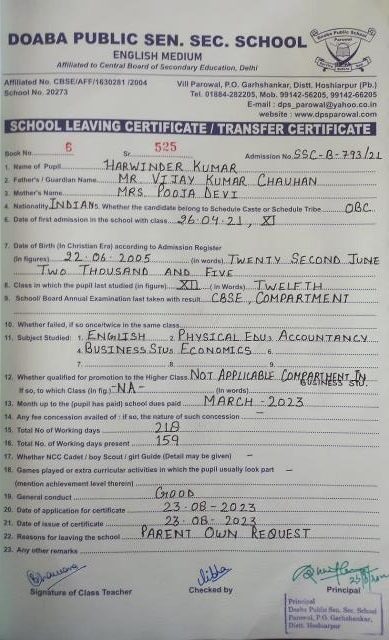 DOABA PUBLIC SEN. SEC. SCHOOL
ENGLISH MEDIUM
Affiliated to Central Board of Secondary Education, Delhi
Doaba Public School
Parowal
Affiliated No. CBSE/AFF/1630281 /2004
School No. 20273
Vill Parowal, P.O. Garhshankar, Distt. Hoshiarpur (Pb.)
Tel. 01884-282205, Mob. 99142-56205, 99142-66205
E-mail : dps_parowal@yahoo.co.in
website : www.dpsparowal.com
SCHOOL LEAVING CERTIFICATE / TRANSFER CERTIFICATE
Book No. 6 Sr. 525 Admission No. SSC-B-793/21
1. Name of Pupil HARWINDER KUMAR
2. Father's / Guardian Name MR. VIJAY KUMAR CHAUHAN
3. Mother's Name MRS. POOJA DEVI
4. Nationality INDIAN 5. Whether the candidate belong to Schedule Caste or Schedule Tribe OBC
6. Date of first admission in the school with class 26.04.21, XI
7. Date of Birth (In Christian Era) according to Admission Register
(In figures) 22-06-2005 (in words) TWENTY SECOND JUNE
TWO THOUSAND AND FIVE
8. Class in which the pupil last studied (in figure) XII ( in Words) TWELFTH
9. School/ Board Annual Examination last taken with result CBSE, COMPARTMENT
10. Whether failed, if so once/twice in the same class
11. Subject Studied : 1. ENGLISH 2. PHYSICAL EDU 3. ACCOUNTANCY
4. BUSINESS STU 5. ECONOMICS 6.
7. 8. 9.
12. Whether qualified for promotion to the Higher Class NOT APPLICABLE COMPARTMENT IN
BUSINESS STU.
If so, to which Class (In fig.) -NA- (In Words)
13. Month up to the (pupil has paid) school dues paid MARCH-2023
14. Any fee concession availed of : if so, the nature of such concession -
15. Total No. of Working days 218
16. Total No. of Working days present 159
17. Whether NCC Cadet / boy Scout / girl Guide (Detail may be given) -
18. Games played or extra curricular activities in which the pupil usually look part -
(mention achievement level therein)
19. General conduct GOOD
20. Date of application for certificate 23-08-2023
21. Date of issue of certificate 23-08-2023
22. Reasons for leaving the school PARENT OWN REQUEST
23. Any other remarks
Signature of Class Teacher Checked by Principal
Principal
Doaba Public Sen. Sec. School
Parowal, P.O. Garhshankar,
Distt. Hoshiarpur